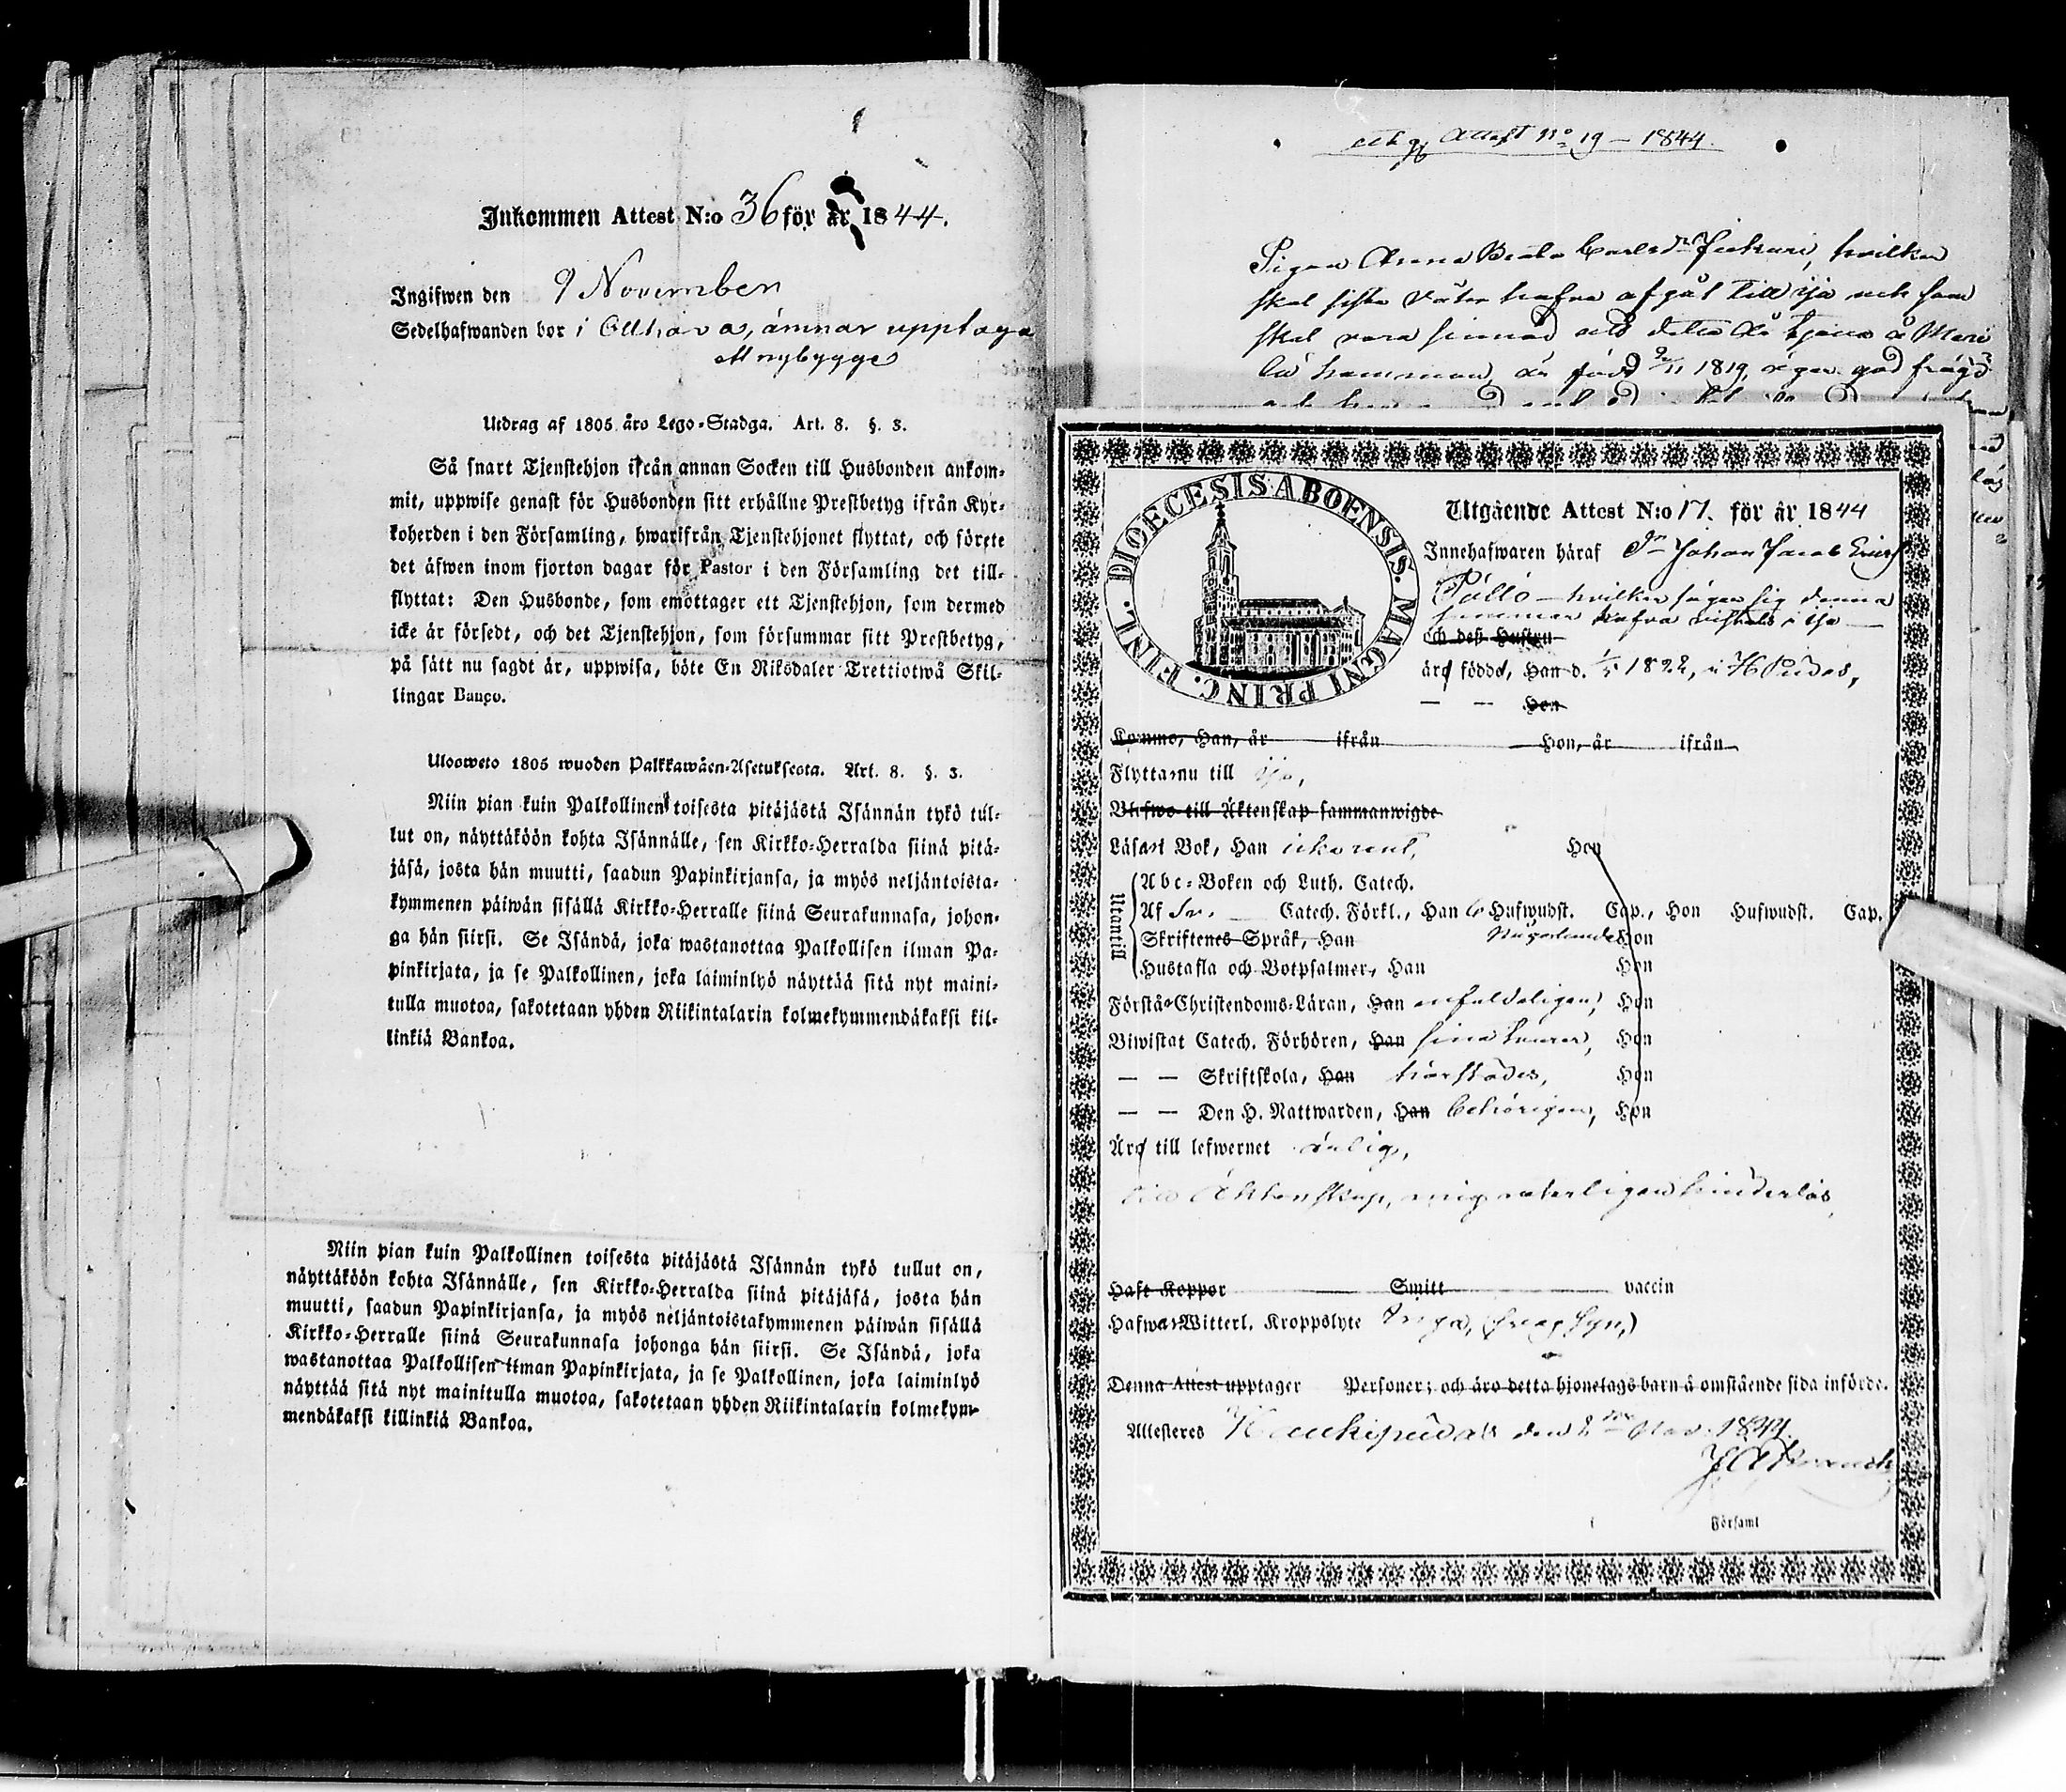 Inkommen Attest N:o 36 för år 1844.
Ingifwen den 9 November
Sedelhafwanden bor i Olkava, ämnar upptaga
ett nybygge
Utdrag af 1805 års Lego-Stadga. Art. 8. §. 3.
Så snart Tjenstehjon ifrån annan Socken till Husbonden ankom-
mit, uppwise genast för Husbonden sitt erhållne Prestbetyg ifrån Kyr-
koherden i den Församling, hwarifrån Tjenstehjonet flyttat, och förete
det äfwen inom fjorton dagar för Pastor i den Församling det till-
flyttat: Den Husbonde, som emottager ett Tjenstehjon, som dermed
icke är försedt, och det Tjenstehjon, som försummar sitt Prestbetyg,
på sätt nu sagdt är, uppwisa, böte En Riksdaler Trettiotwå Skil-
lingar Banco.
Ulosweto 1805 wuoden Palkkawäen-Asetuksesta. Art. 8. §. 3.
Niin pian kuin Palkollinen toisesta pitäjästä Isännän tykö tul-
lut on, näyttäköön kohta Isännälle, sen Kirkko-Herralda siinä pitä-
jäsä, josta hän muutti, saadun Papinkirjansa, ja myös neljäntoista-
kymmenen päiwän sisällä Kirkko-Herralle siinä Seurakunnasa, johon-
ga hän siirsi. Se Isändä, joka wastanottaa Palkollisen ilman Pa-
pinkirjata, ja se Palkollinen, joka laiminlyö näyttää sitä nyt maini-
tulla muotoa, sakotetaan yhden Riikintalarin kolmekymmendäkaksi kil-
linkiä Bankoa.
Niin pian kuin Palkollinen toisesta pitäjästä Isännän tykö tullut on,
näyttäköön kohta Isännälle, sen Kirkko-Herralda siinä pitäjäsä, josta hän
muutti, saadun Papinkirjansa, ja myös neljäntoistakymmenen päiwän sisällä
Kirkko-Herralle siinä Seurakunnasa johonga hän siirsi. Se Isändä, joka
wastanottaa Palkollisen ilman Papinkirjata, ja se Palkollinen, joka laiminlyö
näyttää sitä nyt mainitulla muotoa, sakotetaan yhden Riikintalarin kolmekym-
mendäkaksi killinkiä Bankoa.
Attest No 19 – 1844.
Pigan Anna Beata Carlsdr hvilken
skal sista vinter hafva afgåt till Ijo och som
skal vara sinnad att detta år tjena å
hemman, är född 1819, äger god frägd
DIOECESIS ABOENSIS. MAGNI PRINC. FINL.
Utgående Attest N:o 17. för år 1844
Innehafwaren häraf Johan Jacob Ericss
Pöllö – hvilken säger sig denna
sommar hafva vistats i Ijo
och dess Hustru
äro födde, Han d. 1/5 1822, i H Pudas,
— — Hon
Komne, Han, år ifrån Hon, år ifrån
Flytta nu till Ijo,
Blefwo till Äktenskap sammanwigde
Läsa i Bok, Han icke rent, Hon
Utantill
Abc-Boken och Luth. Catech.
Af Sv. Catech. Förkl., Han 6 Hufwudst. Cap., Hon Hufwudst. Cap.
Skriftenes Språk, Han Någorlunda Hon
Hustafla och Botpsalmer, Han Hon
Förstå Christendoms-Läran, Han enfaldeligen, Hon
Biwistat Catech. Förhören, Han sina Hon
— — Skriftskola, Han härstädes, Hon
— — Den H. Nattwarden, Han behörigen, Hon
Äro till lefwernet ärlig,
till Äktenskap, mig veterligen hinderlös,
Haft Koppor Smitt vaccin
Hafwa Witterl. Kroppslyte Inga, (swag syn)
Denna Attest upptager Personer; och äro detta hjonelags barn å omstående sida införde.
Attesteras Haukipudas den 2 Nov. 1844.
Församl